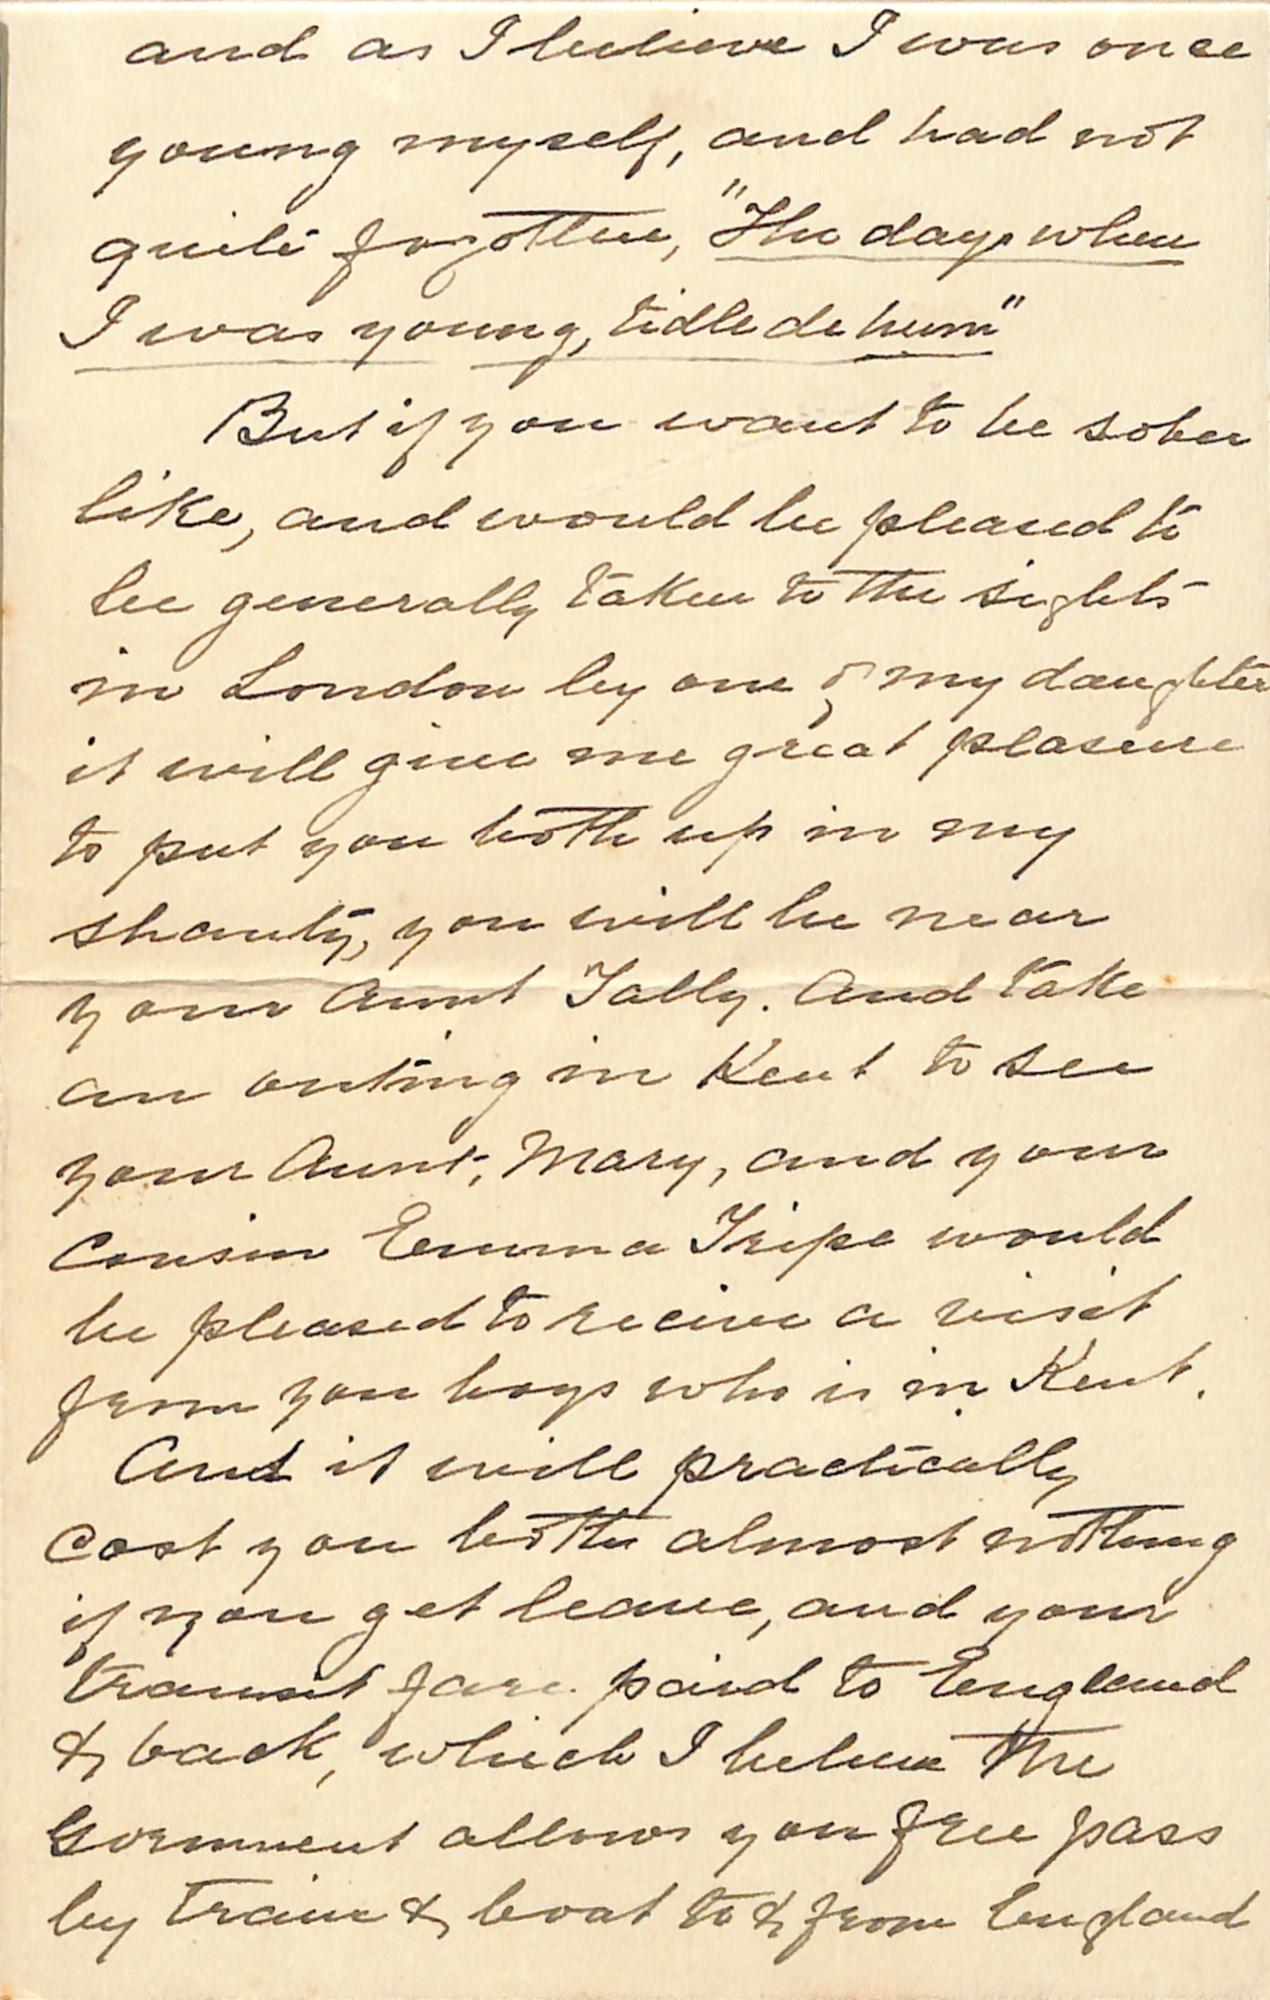 and as I believe I was once
young myself, and had not
quite forgotten, "The days when
I was young, tidle de hum"
But if you want to be sober
like, and would be pleased to
be generally taken to the sights
in London by one of my daughter
it will give me great plasure
to put you both up in my
shanty, you will be near
your Aunt Tally. And take
an outing in Kent to see
your Aunt, Mary, and your
Cousin Emma Tripe would
be pleased to recive a visit
from you boys who is in Kent.
And it will practically
cost you both almost nothing
if you get leave, and your
transit fare paid to England
& back, which I beleve the
Goverment allows you free pass
by train & boat to & from England